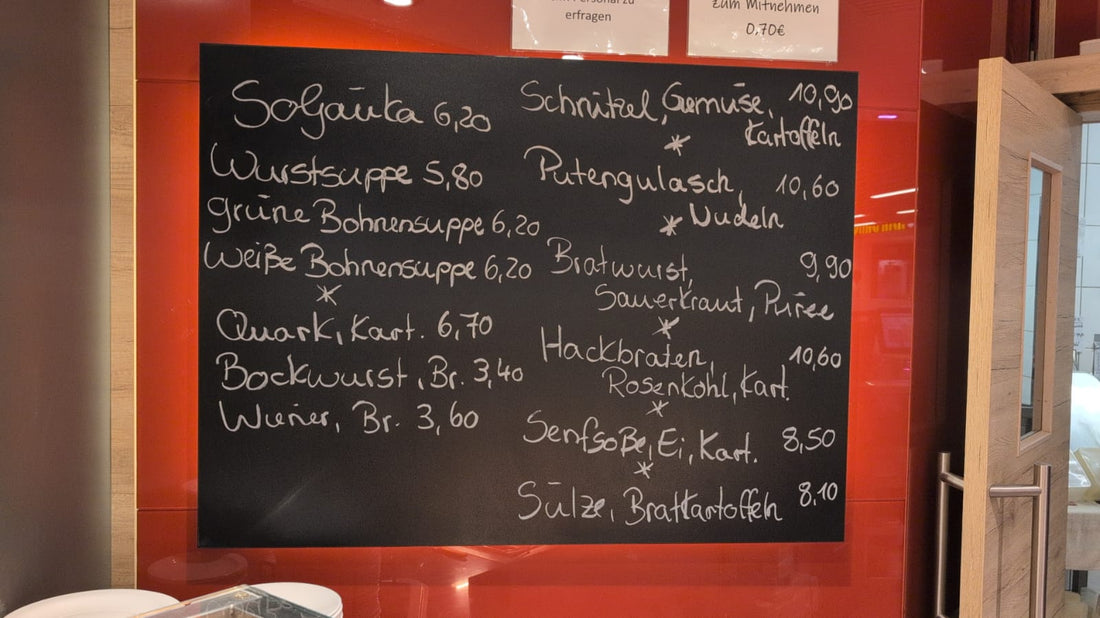 Personal zu
erfragen
zum Mitnehmen
0,70€
Soljanka 6,20
Wurstsuppe 5,80
grüne Bohnensuppe 6,20
weiße Bohnensuppe 6,20
*
Quark, Kart. 6,70
Bockwurst, Br. 3,40
Wiener, Br. 3,60
Schnitzel, Gemüse, 10,90
Kartoffeln
*
Putengulasch, 10,60
* Nudeln
Bratwurst, 9,90
Sauerkraut, Püree
*
Hackbraten, 10,60
Rosenkohl, Kart.
*
Senfsoße, Ei, Kart. 8,50
*
Sülze, Bratkartoffeln 8,10